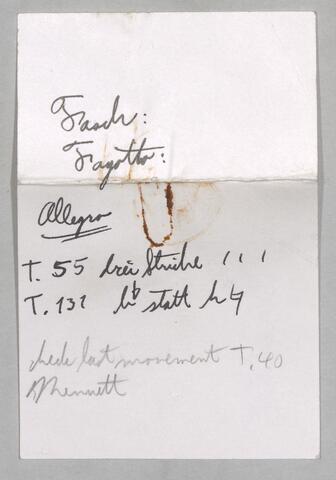 Fasch:
Fagotto:
Allegro
T. 55 drei Striche ' ' '
T. 131 b♭ statt h ♮
check last movement T. 40
Menuett